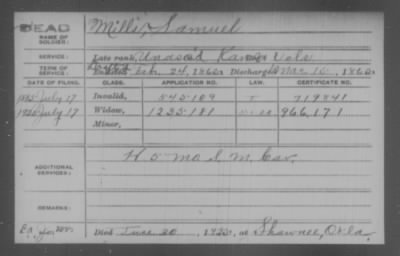 DEAD
NAME OF SOLDIER: Millis, Samuel
SERVICE: Late rank, Unass'd Kans. Vols
TERM OF SERVICE: Enlisted Feb. 24, 1865 Discharged Mar 16, 1865
DATE OF FILING. CLASS. APPLICATION NO. LAW. CERTIFICATE NO.
1885 July 17 Invalid, 545109 719841
1925 July 17 Widow, 1235181 966,171
Minor,
ADDITIONAL SERVICES: H 5 Mo S. M. Cav.
REMARKS:
Died June 20, 1925, at Shawnee, Okla.